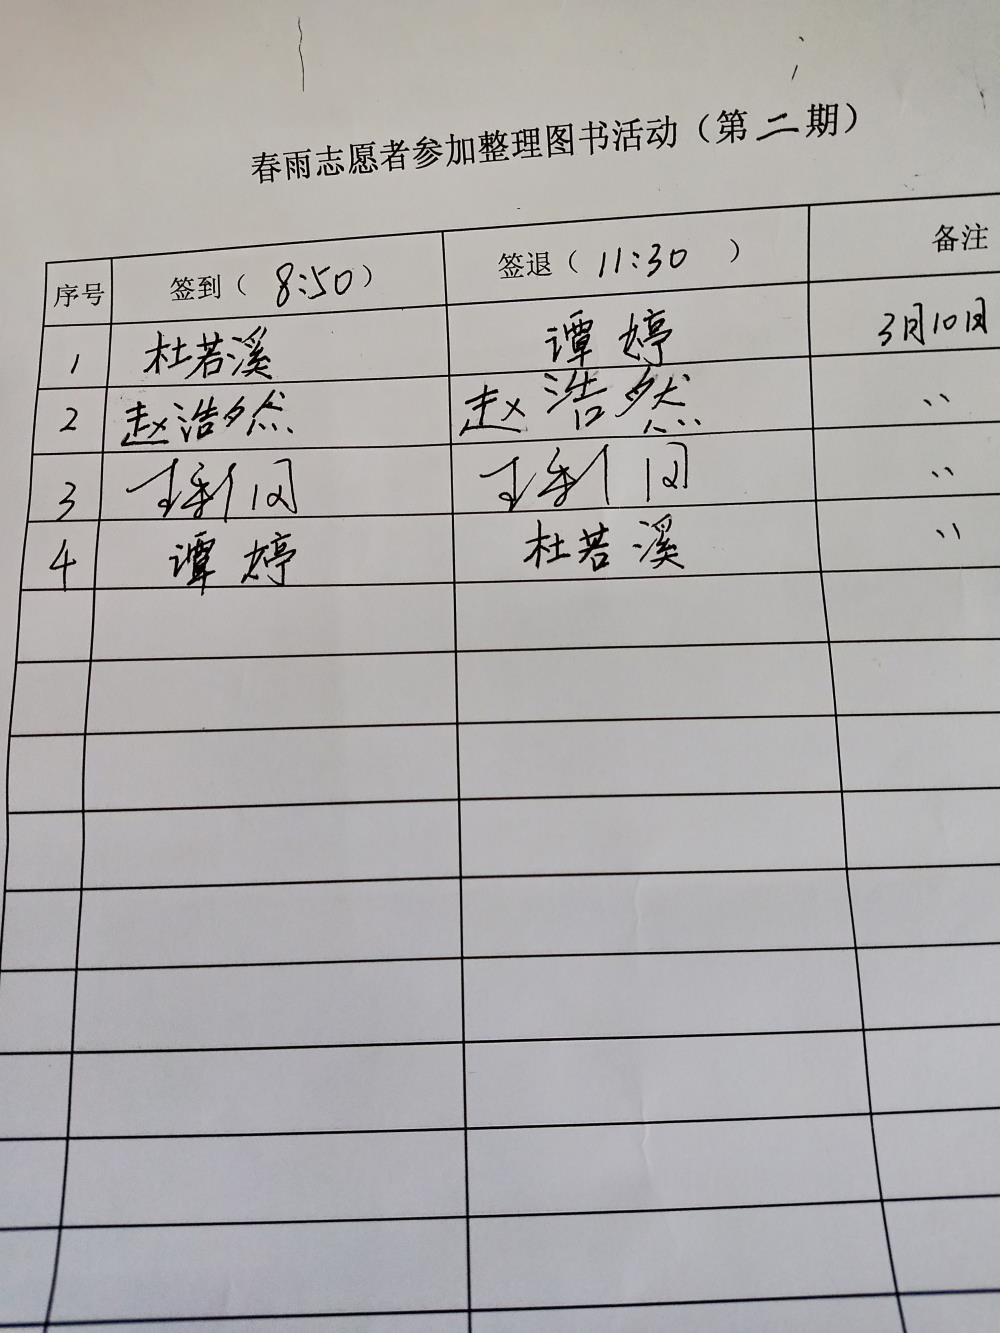 春雨志愿者参加整理图书活动（第二期）
序号 签到（8:50） 签退（11:30） 备注
1 杜若溪 谭婷 3月10日
2 赵浩然 赵浩然 〃
3 王利 王利 〃
4 谭婷 杜若溪 〃